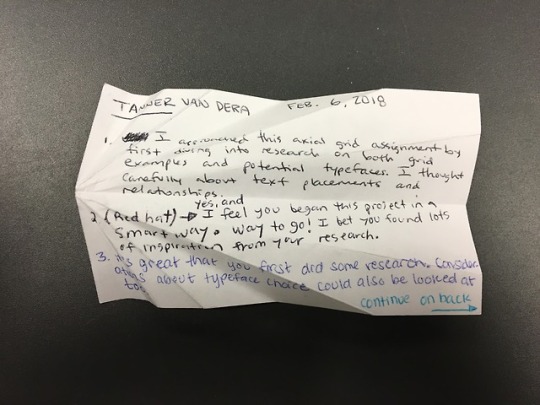 TANNER VAN DERA FEB. 6, 2018
1. I approached this axial grid assignment by
first diving into research on both grid
examples and potential typefaces. I thought
carefully about text placements and
relationships.
yes, and
2. (Red hat) → I feel you began this project in a
smart way. way to go! I bet you found lots
of inspiration from your research.
3. It's great that you first did some research. Consider
ations about typeface choice could also be looked at
too
continue on back